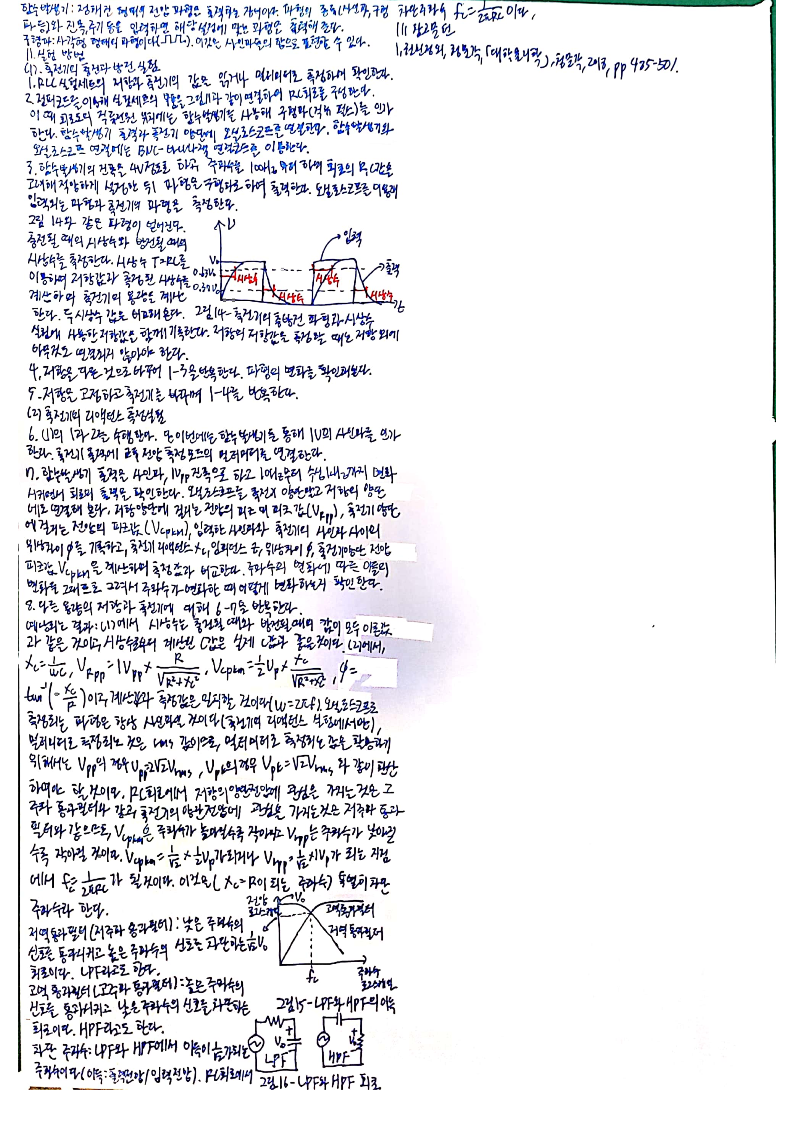 함수발생기: 정해진 형태의 전압 파형을 출력하는 장비이다. 파형의 종류(사인파, 구형
파 등)와 진폭, 주기 등을 입력하면 해당 설정에 맞는 파형을 출력해 준다.
구형파: 사각형 형태의 파형이다. 이것은 사인파들의 합으로 표현할 수 있다.
II. 실험 방법
(1). 축전기의 충전과 방전 실험
1. RLC 실험세트의 저항과 축전기의 값을 읽거나 멀티미터로 측정하여 확인한다.
2. 전선코드를 이용해 실험세트의 부품을 그림과 같이 연결하여 RC회로를 구성한다.
이 때 회로도의 직류전원 위치에는 함수발생기를 사용해 구형파(직류 펄스)를 인가
한다. 함수발생기 출력과 축전기 양단에 오실로스코프를 연결한다. 함수발생기와
오실로스코프 연결에는 BNC-바나나잭 연결코드를 이용한다.
3. 함수발생기의 진폭은 4V정도로 하고 주파수를 100Hz 부터 하여 회로의 RC값을
고려해 적당하게 설정한 뒤 파형은 구형파로 하여 출력한다. 오실로스코프를 이용해
입력되는 파형과 축전기의 파형을 측정한다.
그림 14와 같은 파형이 얻어진다.
충전될 때의 시상수와 방전될 때의
시상수를 측정한다. 시상수 T=RC를
이용하여 저항값과 측정된 시상수를
계산하여 축전기의 용량을 계산
한다. 두 시상수 값을 비교해 본다.
V
V₀
0.63V₀
0.37V₀
입력
출력
시상수
시상수
시상수
시상수
그림14-축전기의 충방전 파형과 시상수
실험에 사용한 저항값을 함께 기록한다. 저항의 저항값을 측정할 때는 저항 외에
아무것도 연결되지 않아야 한다.
4. 저항을 다른 것으로 바꾸어 1-3을 반복한다. 파형의 변화를 확인해본다.
5. 저항을 고정하고 축전기를 바꾸며 1-4를 반복한다.
(2) 축전기의 리액턴스 측정실험
6. (1)의 1과 2를 수행한다. 단 이번에는 함수발생기를 통해 1V의 사인파를 인가
한다. 축전기 출력에 교류 전압 측정 모드의 멀티미터를 연결한다.
7. 함수발생기 출력을 사인파, 1Vpp 진폭으로 하고 10Hz부터 수십kHz까지 변화
시키면서 회로의 출력을 확인한다. 오실로스코프를 축전기 양단말고 저항의 양단
에도 연결해 본다. 저항 양단에 걸리는 전압의 피크 피크 값(V_Rpp), 축전기 양단
에 걸리는 전압의 피크값(V_cpkm), 입력한 사인파와 축전기의 사인파 사이의
위상차이 φ를 기록하고, 축전기 리액턴스 Xc, 임피던스 Z, 위상차이 φ, 축전기양단 전압
피크값 V_cpkm을 계산하여 측정값과 비교한다. 주파수의 변화에 따른 이들의
변화를 그래프로 그려서 주파수가 변화할 때 어떻게 변화하는지 확인한다.
8. 다른 용량의 저항과 축전기에 대해 6-7을 반복한다.
예상되는 결과: (1)에서 시상수는 충전될 때와 방전될 때의 값이 모두 이론값
과 같을 것이고, 시상수로부터 계산된 C값은 실제 C값과 같을것이다. (2)에서,
Xc=1/ωC, V_Rpp=1Vpp×R/√(R²+Xc²), V_cpkm=1/2 Vp×Xc/√(R²+Xc²), φ=
tan⁻¹(-Xc/R)이고, 계산값과 측정값은 일치할 것이다(ω=2πf). 오실로스코프로
측정되는 파형은 항상 사인파일 것이다(축전기의 리액턴스 실험에서만).
멀티미터로 측정되는 것은 rms 값이므로, 멀티미터로 측정되는 값을 확인하기
위해서는 Vpp의 경우 Vpp=2√2Vrms, Vpk의 경우 Vpk=√2Vrms 와 같이 환산
하여야 할 것이다. RC회로에서 저항의 양단전압에 관심을 가지는 것은 고
주파 통과필터와 같고 축전기의 양단전압에 관심을 가지는것은 저주파 통과
필터와 같으므로, V_cpkm은 주파수가 높아질수록 작아지고 V_rpp는 주파수가 낮아질
수록 작아질 것이다. V_cpkm=1/√2×1/2Vp가 되거나 V_rpp=1/√2×1Vp가 되는 지점
에서 fc=1/2πRC가 될 것이다. 이것은(Xc=R이 되는 주파수) 특별히 차단
주파수라 한다.
저역통과필터(저주파 통과필터): 낮은 주파수의
신호를 통과시키고 높은 주파수의 신호는 차단하는
회로이다. LPF라고도 한다.
고역 통과필터(고주파 통과필터): 높은 주파수의
신호를 통과시키고 낮은 주파수의 신호를 차단하는
회로이다. HPF라고도 한다.
차단 주파수: LPF와 HPF에서 이득이 1/√2가 되는
주파수이다(이득=출력전압/입력전압). RC회로에서
전압
로그스케일
V₀
1/√2V₀
고역통과필터
저역 통과필터
fc
주파수
로그스케일
그림15-LPF와 HPF의 이득
V₀
LPF
V₀
HPF
그림16-LPF와 HPF 회로
차단주파수 fc=1/2πRC이다.
III 참고문헌